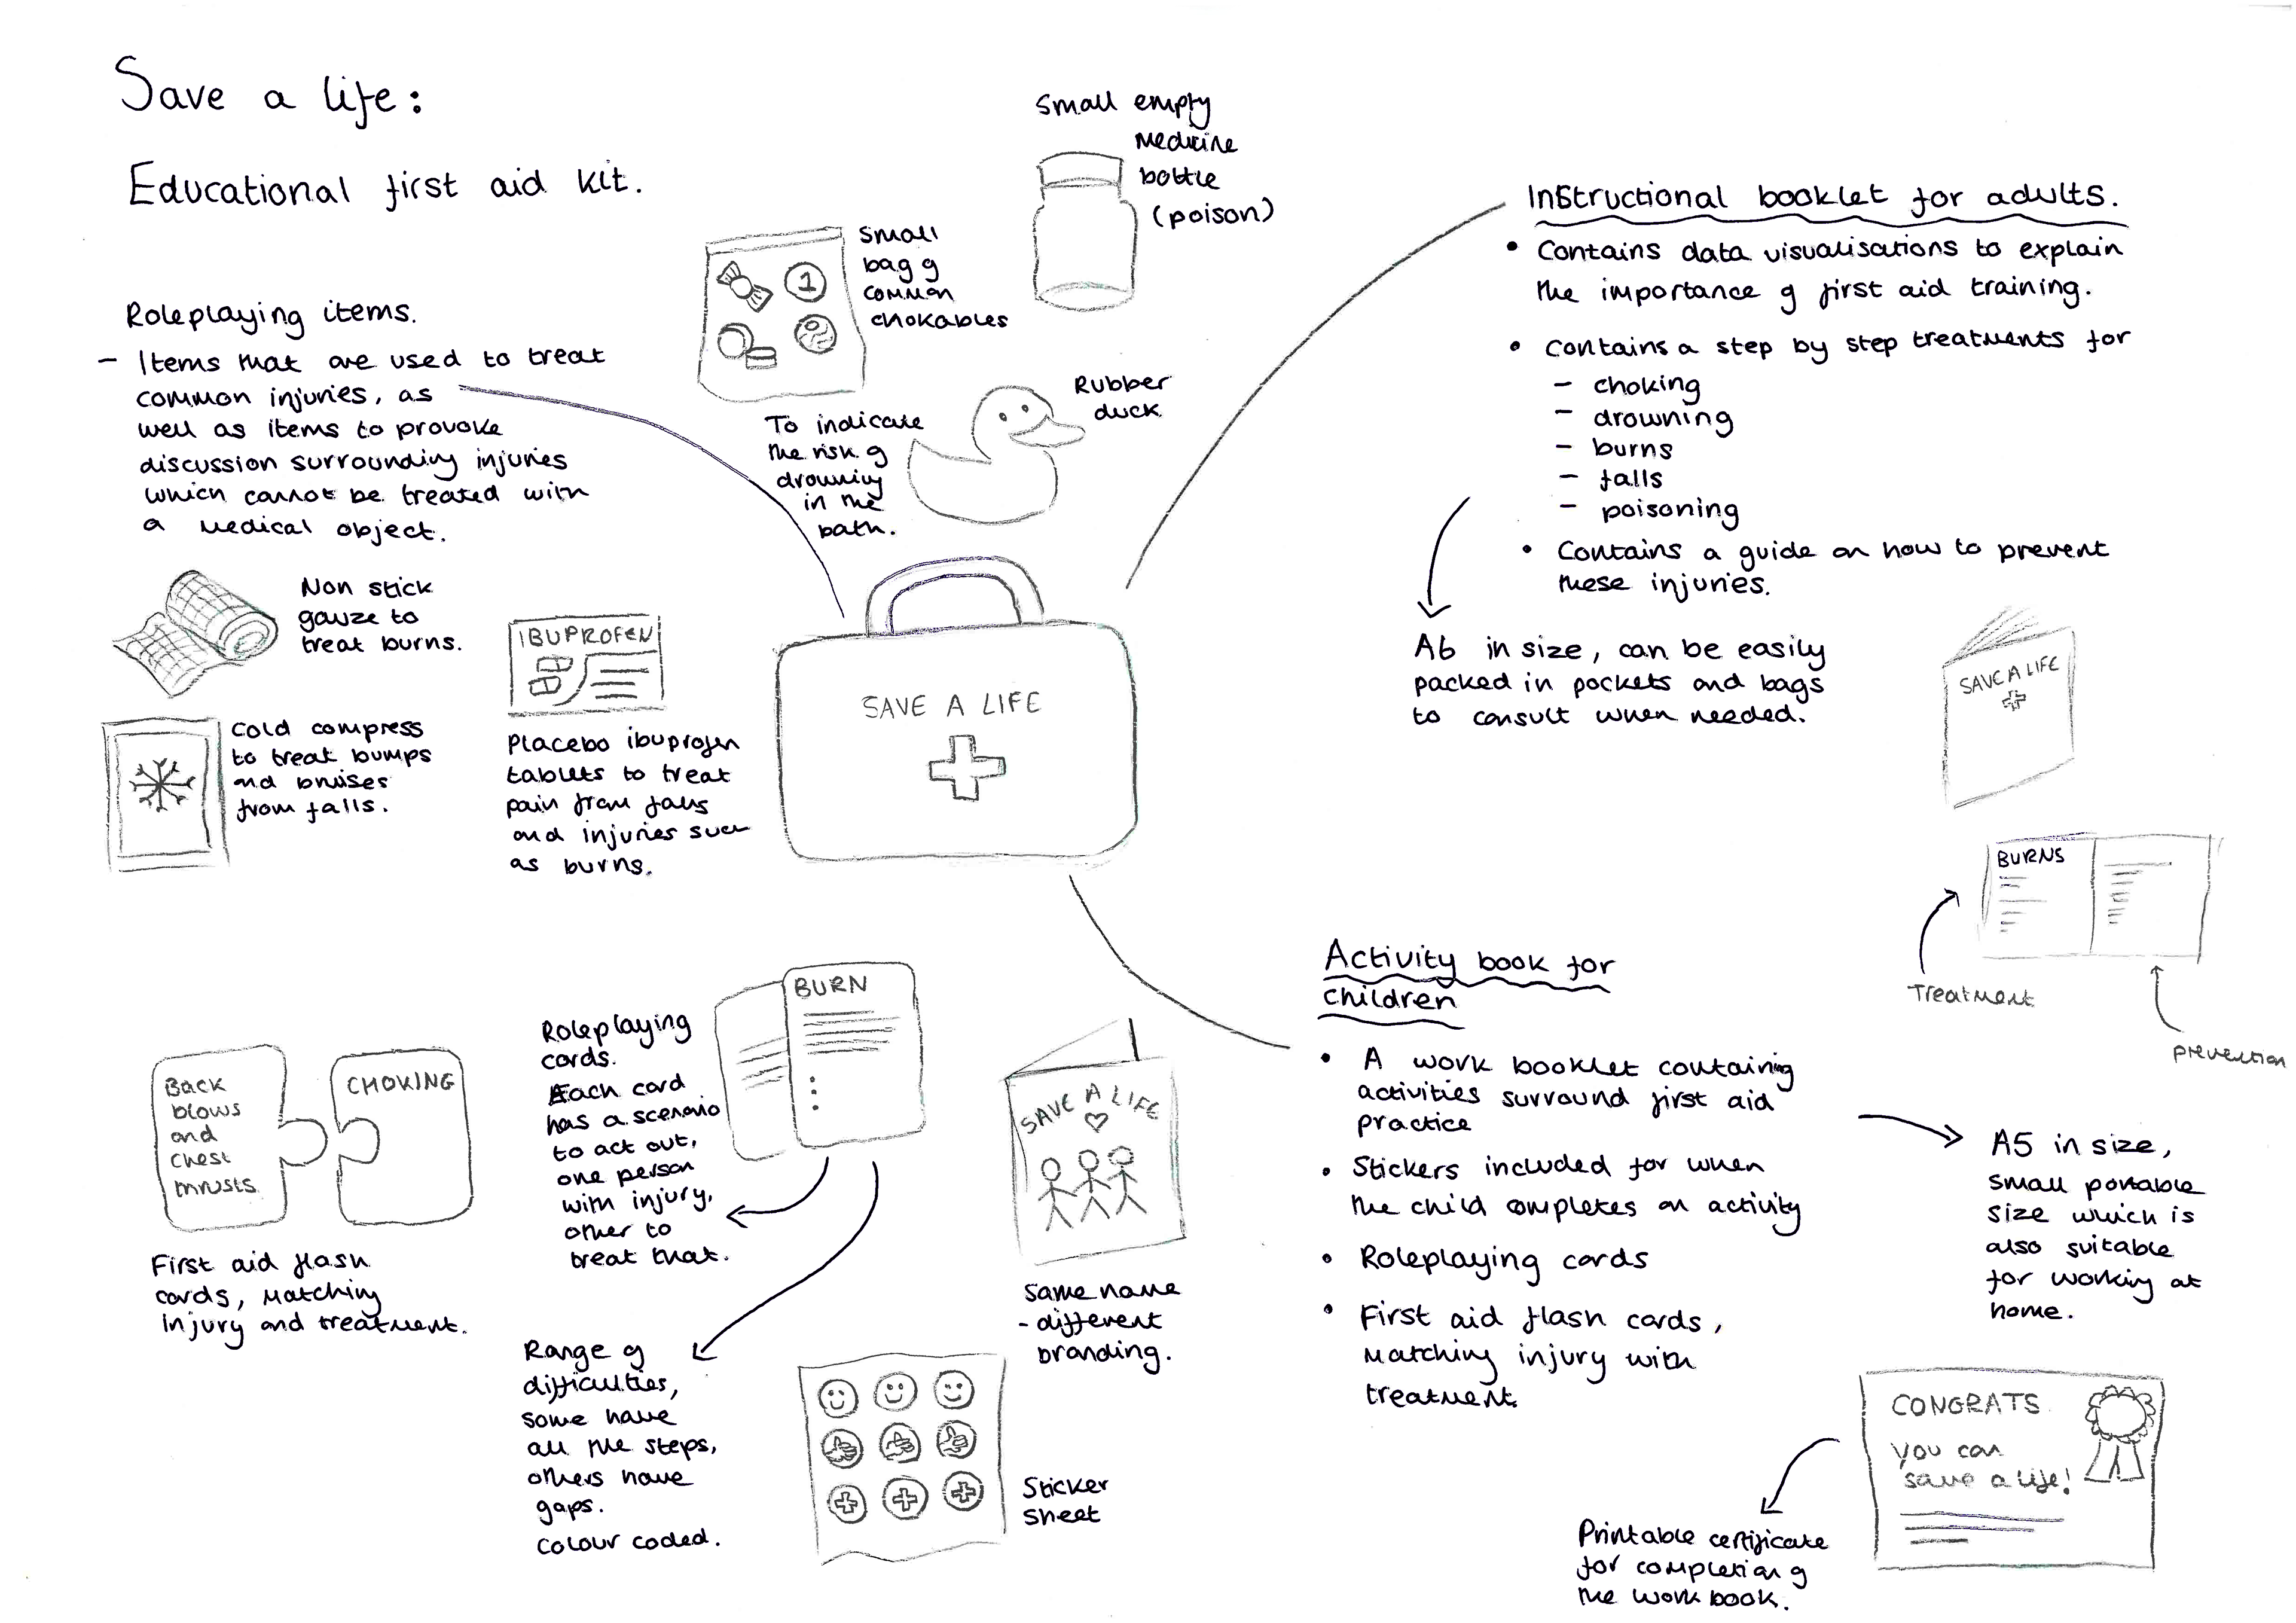 Save a life:
Educational first aid kit.
Roleplaying items.
- Items that are used to treat
common injuries, as
well as items to provoke
discussion surrounding injuries
which cannot be treated with
a medical object.
Small
bag of
common
chokables
Small empty
medicine
bottle
(poison)
To indicate
the risk of
drowning
in the
bath.
Rubber
duck
Non stick
gauze to
treat burns.
Cold compress
to treat bumps
and bruises
from falls.
IBUPROFEN
Placebo ibuprofen
tablets to treat
pain from falls
and injuries such
as burns.
1
SAVE A LIFE
Instructional booklet for adults.
• Contains data visualisations to explain
the importance of first aid training.
• Contains a step by step treatments for
- choking
- drowning
- burns
- falls
- poisoning
• Contains a guide on how to prevent
these injuries.
A6 in size, can be easily
packed in pockets and bags
to consult when needed.
SAVE A LIFE
BURNS
Treatment
prevention
Back
blows
and
chest
thrusts
CHOKING
First aid flash
cards, matching
injury and treatment.
Roleplaying
cards.
Each card
has a scenario
to act out,
one person
with injury,
other to
treat that.
BURN
Range of
difficulties,
some have
all the steps,
others have
gaps.
Colour coded.
SAVE A LIFE
Same name
- different
branding.
Sticker
sheet
Activity book for
children
• A work booklet containing
activities surround first aid
practice
• Stickers included for when
the child completes an activity
• Roleplaying cards
• First aid flash cards,
matching injury with
treatment.
A5 in size,
small portable
size which is
also suitable
for working at
home.
CONGRATS
you can
save a life!
Printable certificate
for completion of
the workbook.